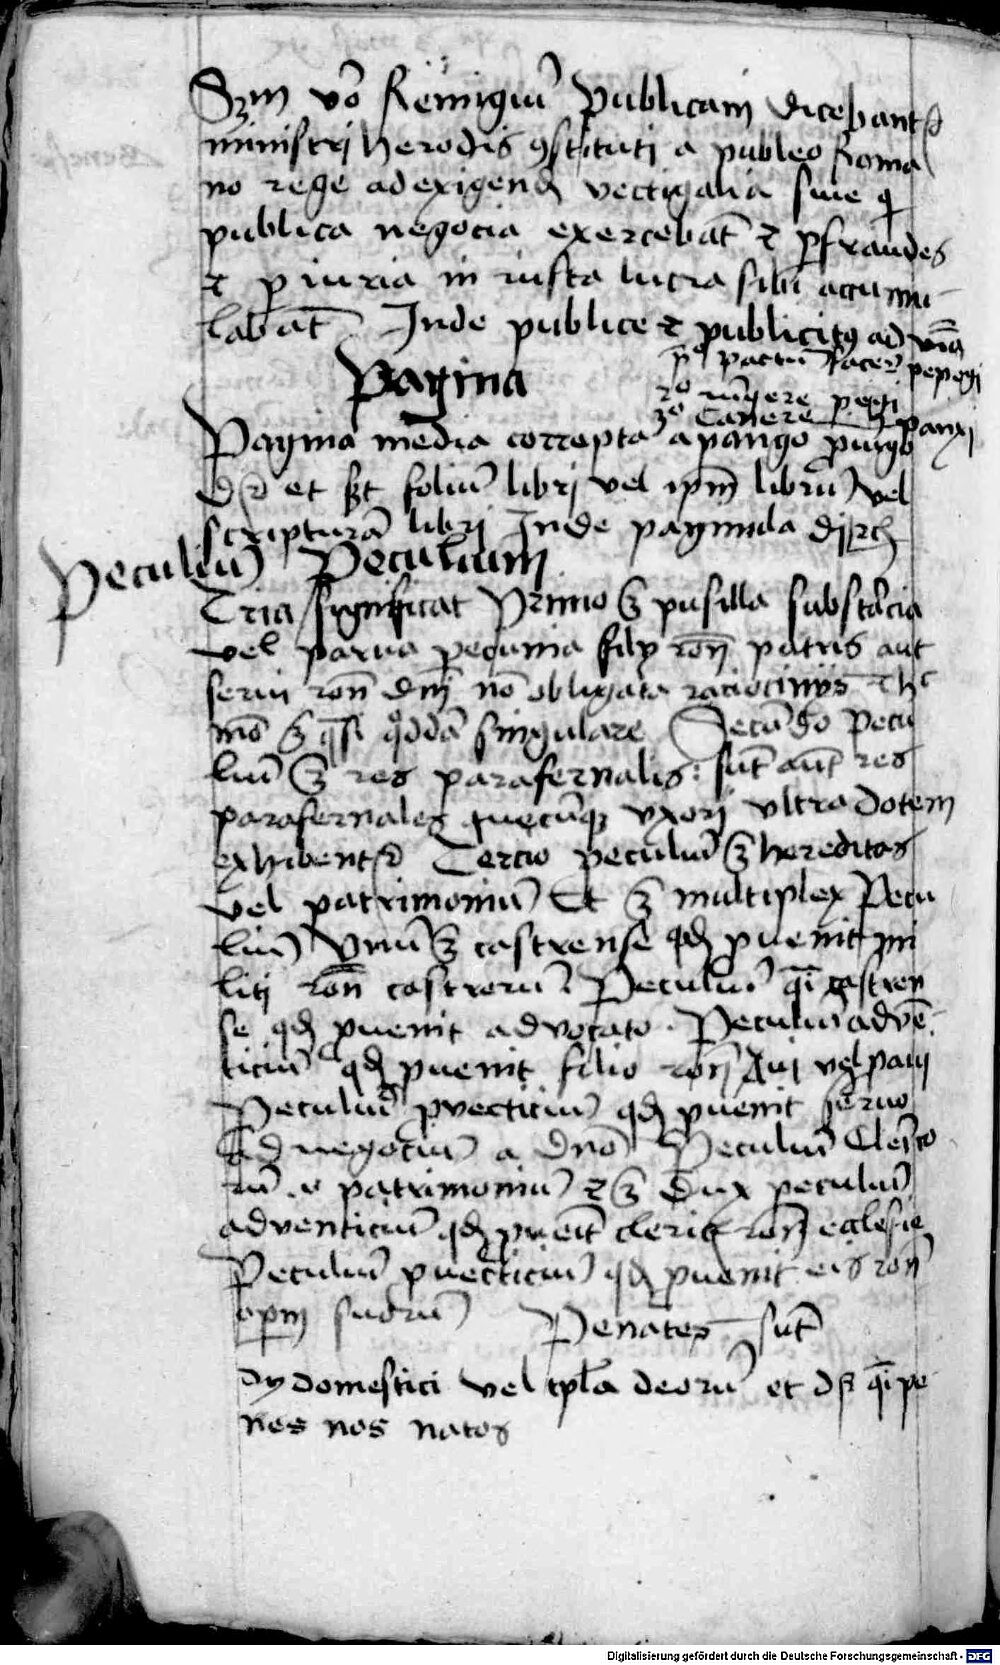 Scdm vo Remigiu publicani dicebantr
ministri herodis 9stituti a populo Roma
no rege ad exigend vectigalia siue qi
publica negocia exercebat et p fraudes
et piuria iniusta lucra sibi accumu
labat Inde publice et publicit9 adu
Pagina
po pactu facere pepegi
2o iugere pegi
3o Canere panxi
Pagina media correpta a pango pangis
dr et st foliu libri vel ipm libru vel
scriptura libri Inde paginula
Peculiu Peculium
Tria significat Primo est pusilla substacia
vel parua pecunia filij ron patris aut
serui ron dni no obligata raciociniis et hc
mo est qsi qdda singulare Secudo pecu
liu est res parafernalis: sut aut res
parafernales quecuq vxori vltra dotem
exhibentr Tercio peculiu est hereditas
vel patrimoniu Et est multiplex Pecu
liu Vnu est castrense qd puenit mi
liti ron castroru Peculiu qi castren
se qd puenit aduocato Peculiu adve
ticiu qd puenit filio ron Aui vel
Peculiu pvecticiu qd puenit seruo
Ad negociu a dno Peculiu Clerico
ru patrimoniu et est Dux peculiu
adventiciu qd pueit cleric ron ecclesie
Peculiu puecticiu qd puenit eis ron
opm suoru Penates sut
dij domestici vel tpla deoru et dr qi pe
nes nos natos
Digitalisierung gefördert durch die Deutsche Forschungsgemeinschaft - DFG